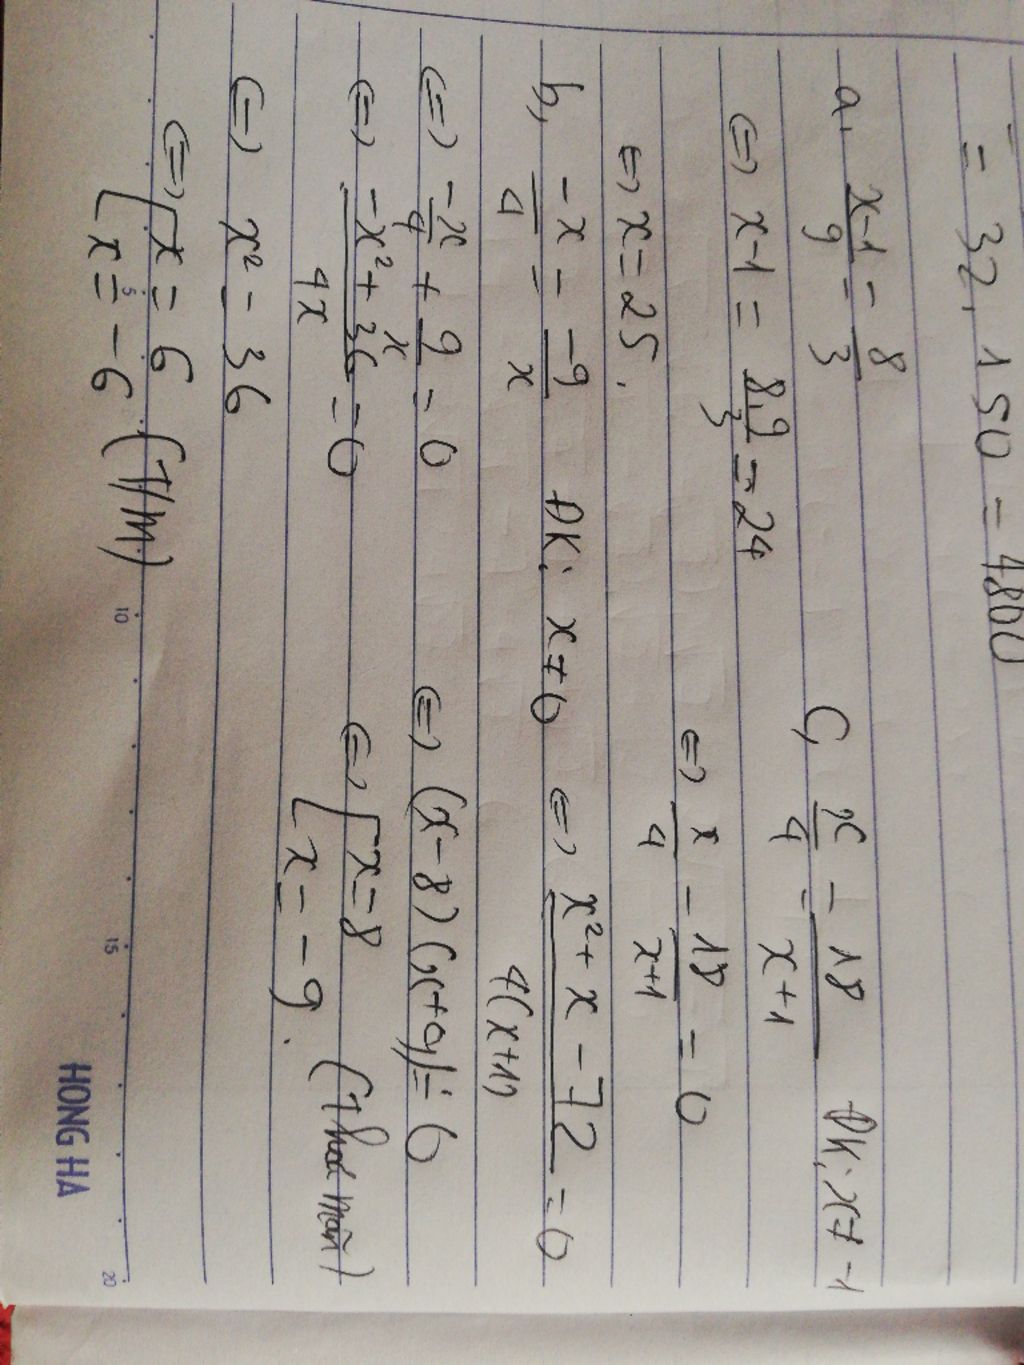 = 32.150 = 4800
a, \frac{x-1}{9} = \frac{8}{3}
<=> x-1 = \frac{8.9}{3} = 24
<=> x = 25.
b, \frac{-x}{4} = \frac{-9}{x} ĐK: x ≠ 0
<=> \frac{-x}{4} + \frac{9}{x} = 0
<=> \frac{-x² + 36}{4x} = 0
<=> x² = 36
<=> [x = 6
[x = -6 (T/M)
c, \frac{x}{4} = \frac{18}{x+1} ĐK: x ≠ -1
<=> \frac{x}{4} - \frac{18}{x+1} = 0
<=> \frac{x² + x - 72}{4(x+1)} = 0
<=> (x-8)(x+9) = 0
<=> [x = 8
[x = -9. (Thoả mãn)
5 10 15 20
HONG HA